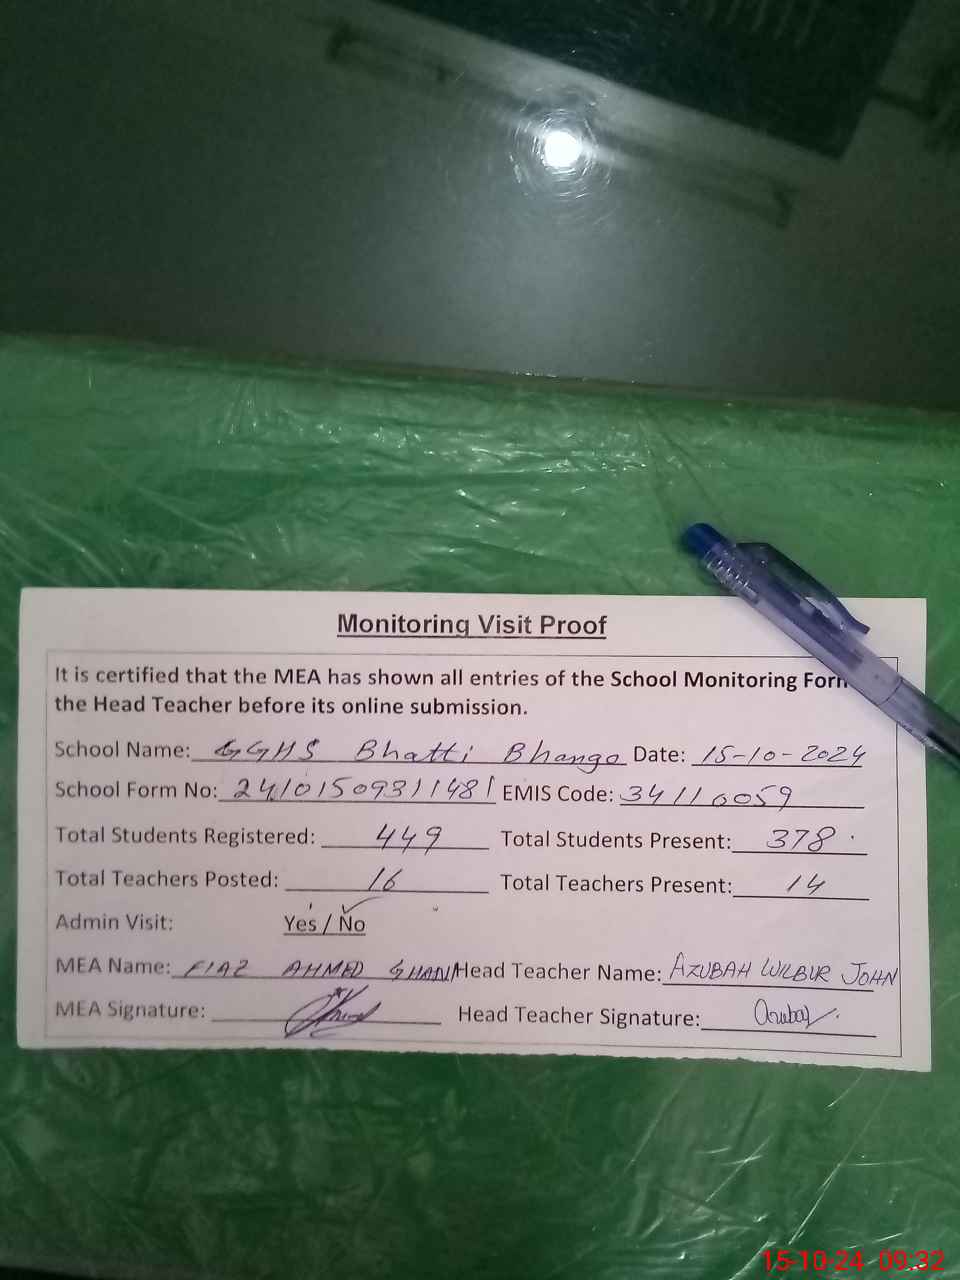 Monitoring Visit Proof
It is certified that the MEA has shown all entries of the School Monitoring Form
the Head Teacher before its online submission.
School Name: GGHS Bhatti Bhango Date: 15-10-2024
School Form No: 24101509311481 EMIS Code: 34110059
Total Students Registered: 449 Total Students Present: 378
Total Teachers Posted: 16 Total Teachers Present: 14
Admin Visit: Yes / No
MEA Name: FIAZ AHMED GHANI Head Teacher Name: AZUBAH WILBUR JOHN
MEA Signature: Head Teacher Signature: Azubah
15-10-24 09:32